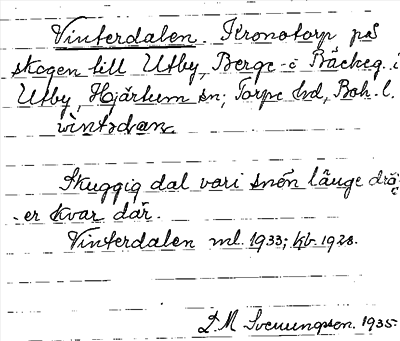 Vinterdalen. Kronotorp på
skogen till Utby, Berge- o Bäckeg. i
Utby, Hjärtum sn; Torpe hd, Boh. l.
vìntədan
Skuggig dal vari snön länge drä-
er kvar där.
Vinterdalen ml. 1933; kb. 1928.
D. M Svenungson. 1935.